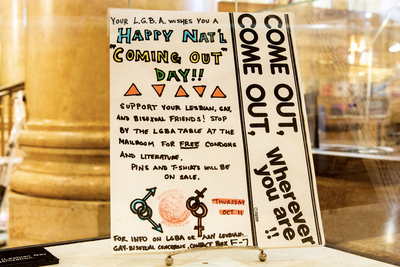 YOUR L.G.B.A. WISHES YOU A
HAPPY NAT'L
"COMING OUT"
DAY!!
SUPPORT YOUR LESBIAN, GAY,
AND BISEXUAL FRIENDS! STOP
BY THE LGBA TABLE AT THE
MAILROOM FOR FREE CONDOMS
AND LITERATURE.
PINS AND T-SHIRTS WILL BE
ON SALE.
THURSDAY
OCT. 11
FOR INFO ON LGBA OR ANY LESBIAN-
GAY-BISEXUAL CONCERNS, CONTACT BOX F-7
COME OUT,
COME OUT,
Wherever
you are!!